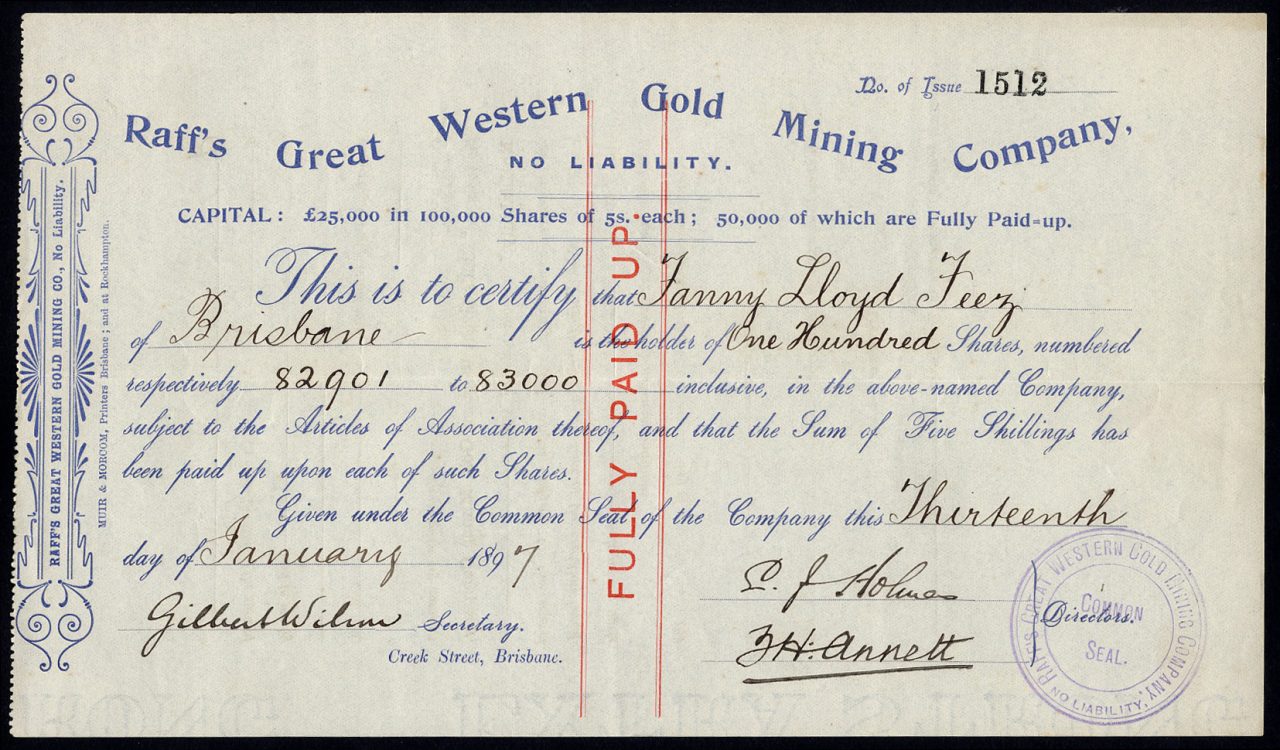 No. of Issue 1512
Raff's Great Western Gold Mining Company,
NO LIABILITY.
CAPITAL: £25,000 in 100,000 Shares of 5s. each; 50,000 of which are Fully Paid=up.
This is to certify that Fanny Lloyd Feez
of Brisbane is the holder of One Hundred Shares, numbered
respectively 82901 to 83000 inclusive, in the above-named Company,
subject to the Articles of Association thereof, and that the Sum of Five Shillings has
been paid up upon each of such Shares.
Given under the Common Seal of the Company this Thirteenth
day of January 1897
Gilbert Wilson Secretary.
Creek Street, Brisbane.
P. J Holmes
F.H. Annett
Directors.
FULLY PAID UP.
RAFF'S GREAT WESTERN GOLD MINING CO., No Liability.
MUIR & MORCOM, Printers Brisbane; and at Rockhampton.
RAFF'S GREAT WESTERN GOLD MINING COMPANY,
NO LIABILITY,
COMMON
SEAL.